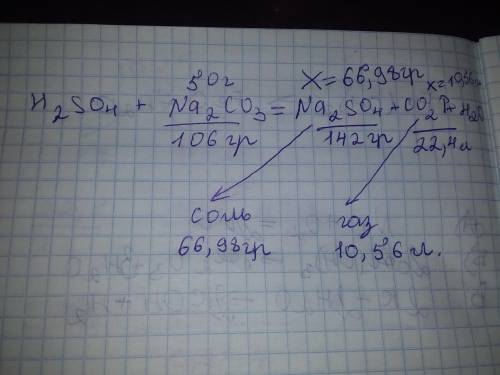 50г X=66,98гр x=10,56л
H₂SO₄ + Na₂CO₃ = Na₂SO₄ + CO₂↑ + H₂O
106гр 142гр 22,4л
соль газ
66,98гр 10,56 л.